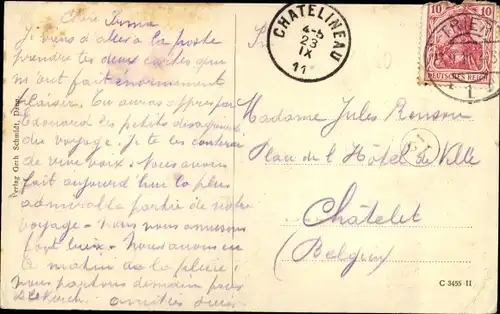 Chère Irma
Je viens d'aller à la poste
prendre tes deux cartes qui
m'ont fait énormément
plaisir. Tu auras appris par
Edouard les petits désagréments
du voyage. Je te les conterai
de vive voix. Nous avons
fait aujourd'hui la plus
admirable partie de notre
voyage - Nous nous amusons
fort bien - Nous avons eu
ce matin de la pluie,
nous partons demain pour
amitiés
Verlag Gebr. Schmidt,
CHATELINEAU
4-5
23
IX
11
10 10
DEUTSCHES REICH
TRIER
1
Madame Jules
Place de l'Hôtel de Ville
Châtelet
(Belgique)
C 3455 II